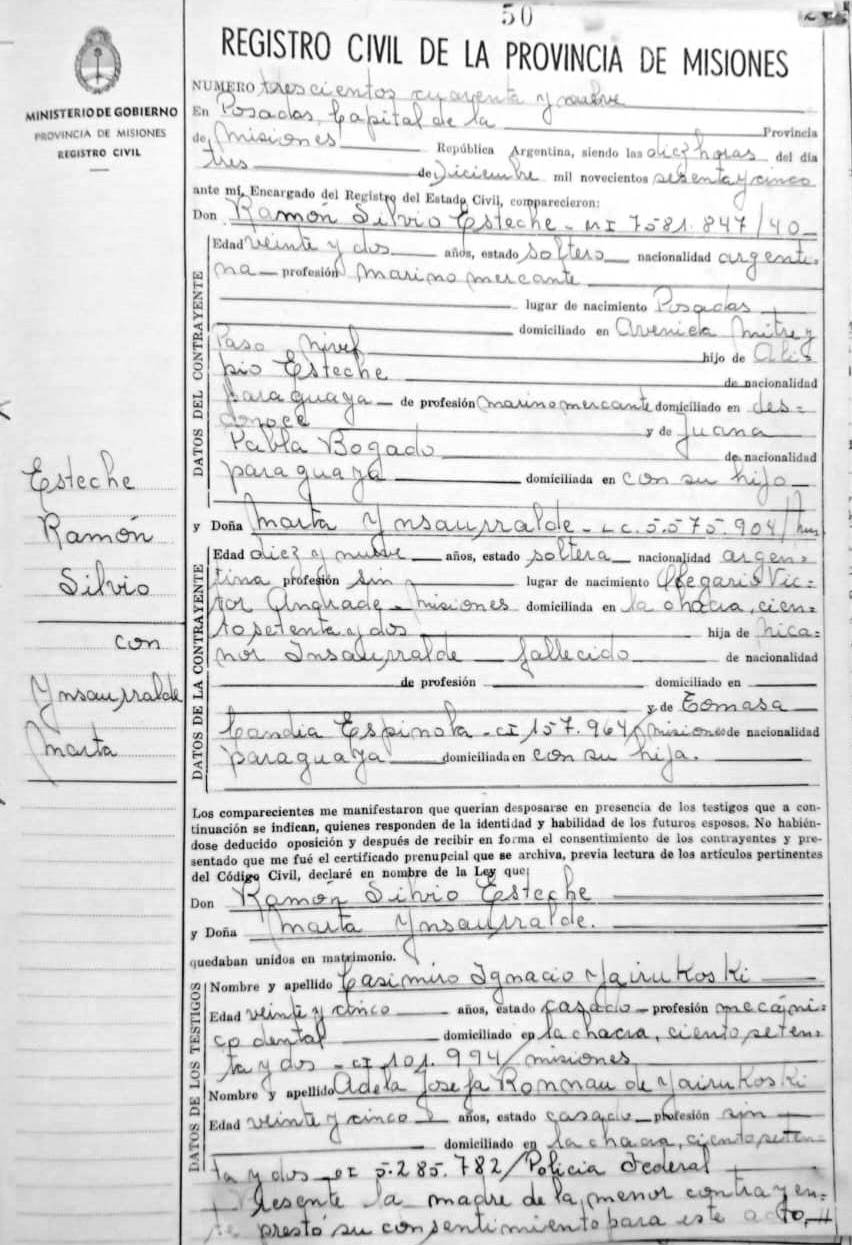 50
REGISTRO CIVIL DE LA PROVINCIA DE MISIONES
MINISTERIO DE GOBIERNO
PROVINCIA DE MISIONES
REGISTRO CIVIL
NUMERO trescientos cuarenta y nueve
En Posadas, Capital de la Provincia
de Misiones República Argentina, siendo las diez horas del día
tres de Diciembre mil novecientos sesenta y cinco
ante mí, Encargado del Registro del Estado Civil, comparecieron:
Don Ramón Silvio Esteche - MI 7581.847/40
DATOS DEL CONTRAYENTE
Edad veinte y dos años, estado soltero nacionalidad argenti=
na profesión marino mercante
lugar de nacimiento Posadas
domiciliado en Avenida Mitre y
Paso Nivel hijo de Ali=
pio Esteche de nacionalidad
paraguaya de profesión marino mercante domiciliado en des=
conoce y de Juana
Pabla Bogado de nacionalidad
paraguaya domiciliada en con su hijo
Esteche
Ramón
Silvio
con
Ynsaurralde
Marta
y Doña Marta Ynsaurralde - LC. 5.575.904/
DATOS DE LA CONTRAYENTE
Edad diez y nueve años, estado soltera nacionalidad argen=
tina profesión sin lugar de nacimiento Olegario Vic=
tor Andrade - Misiones domiciliada en la chacra, cien=
to setenta y dos hija de Nica=
nor Insaurralde fallecido de nacionalidad
de profesión domiciliado en
y de Tomasa
Candia Espinola - CI 157.964/Misiones de nacionalidad
paraguaya domiciliada en con su hija.
Los comparecientes me manifestaron que querían desposarse en presencia de los testigos que a con-
tinuación se indican, quienes responden de la identidad y habilidad de los futuros esposos. No habién-
dose deducido oposición y después de recibir en forma el consentimiento de los contrayentes y pre-
sentado que me fué el certificado prenupcial que se archiva, previa lectura de los artículos pertinentes
del Código Civil, declaré en nombre de la Ley que
Don Ramón Silvio Esteche
y Doña Marta Ynsaurralde.
quedaban unidos en matrimonio.
DATOS DE LOS TESTIGOS
Nombre y apellido Casimiro Ignacio Yairukoski
Edad veinte y cinco años, estado casado profesión mecáni=
co dental domiciliado en la chacra, ciento seten=
ta y dos - CI 101.994/Misiones
Nombre y apellido Adela Josefa Ronnau de Yairukoski
Edad veinte y cinco años, estado casado profesión sin
domiciliado en la chacra, ciento seten=
ta y dos - CI 5.285.782/Policia Federal
Presente la madre de la menor contrayen=
te prestó su consentimiento para este acto.